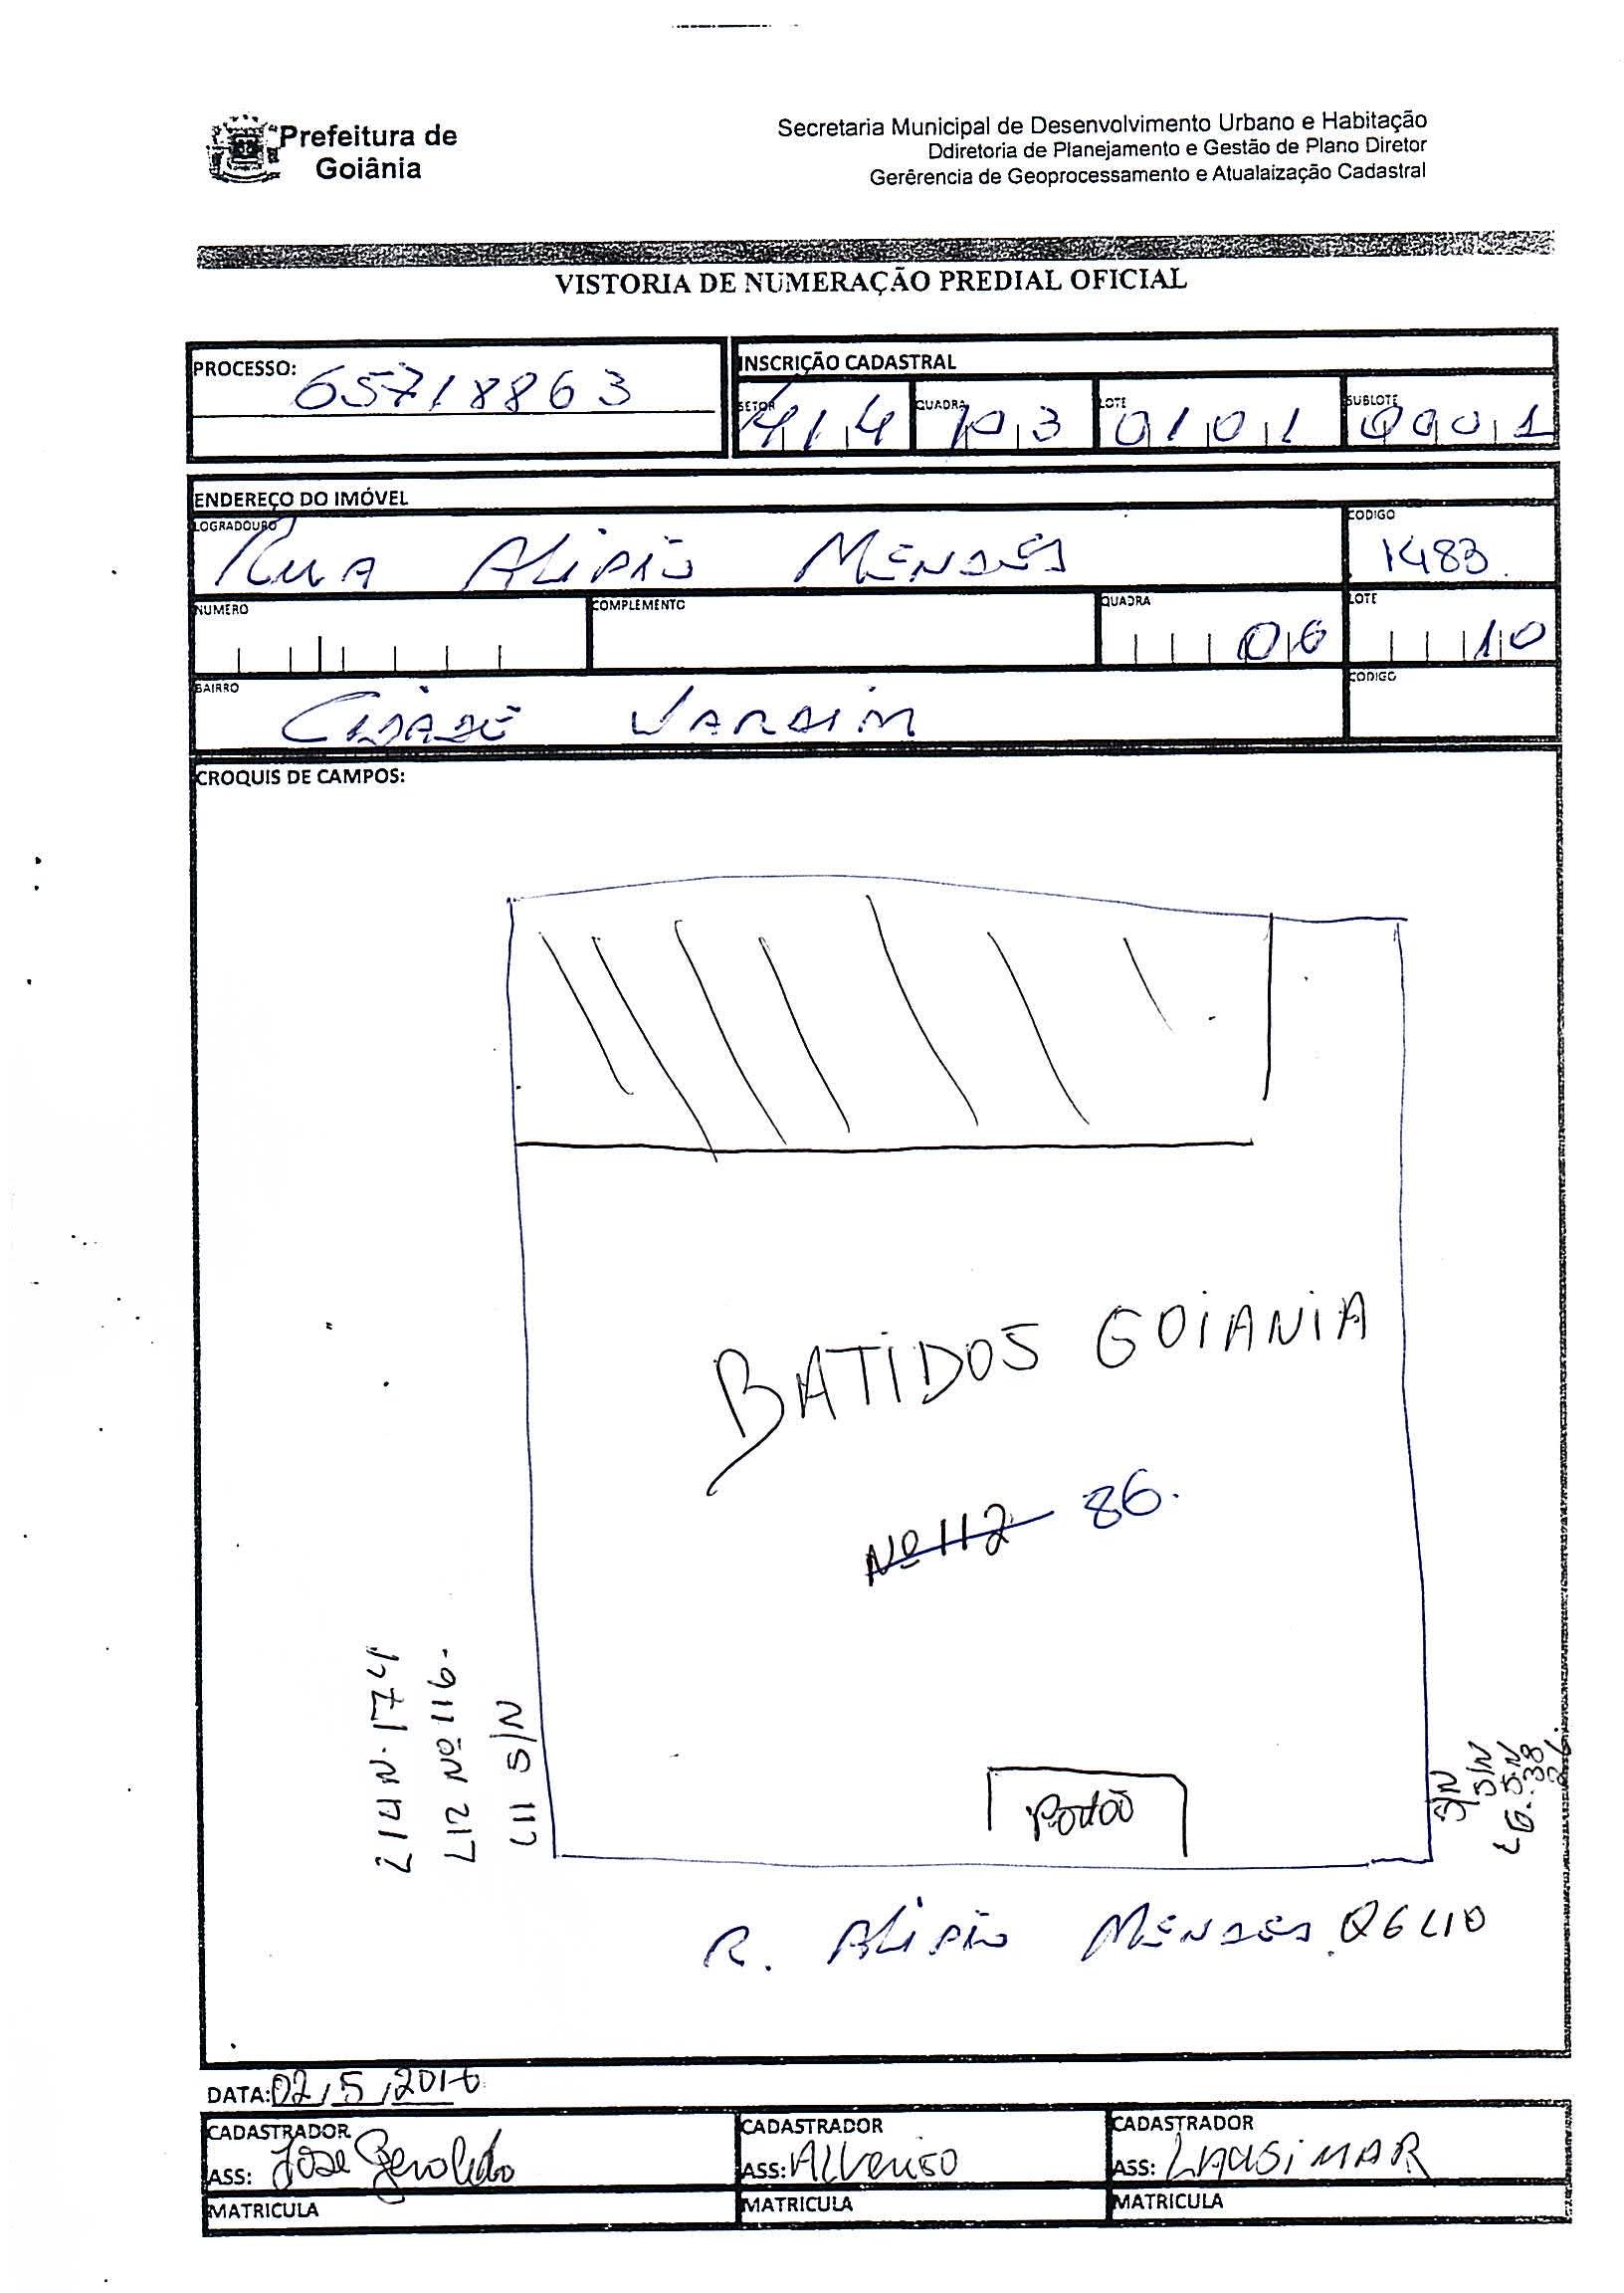 Prefeitura de
Goiânia
Secretaria Municipal de Desenvolvimento Urbano e Habitação
Ddiretoria de Planejamento e Gestão de Plano Diretor
Gerêrencia de Geoprocessamento e Atualaização Cadastral
VISTORIA DE NUMERAÇÃO PREDIAL OFICIAL
PROCESSO: 65718863
INSCRIÇÃO CADASTRAL
SETOR 414 QUADRA 103 LOTE 0101 SUBLOTE 0001
ENDEREÇO DO IMÓVEL
LOGRADOURO Rua Alipio Mendes CODIGO 1483
NUMERO COMPLEMENTO QUADRA 06 LOTE 10
BAIRRO Cidade Jardim CODIGO
CROQUIS DE CAMPOS:
BATIDOS GOIANIA
Nº 112 86.
L14 N. 174
L12 Nº 116-
L11 S/N
S/N
S/N
Portão
R. Alipio Mendes Q6 L10
DATA: 02/5/2016
CADASTRADOR CADASTRADOR CADASTRADOR
ASS: Jose Geraldo ASS: ASS:
MATRICULA MATRICULA MATRICULA